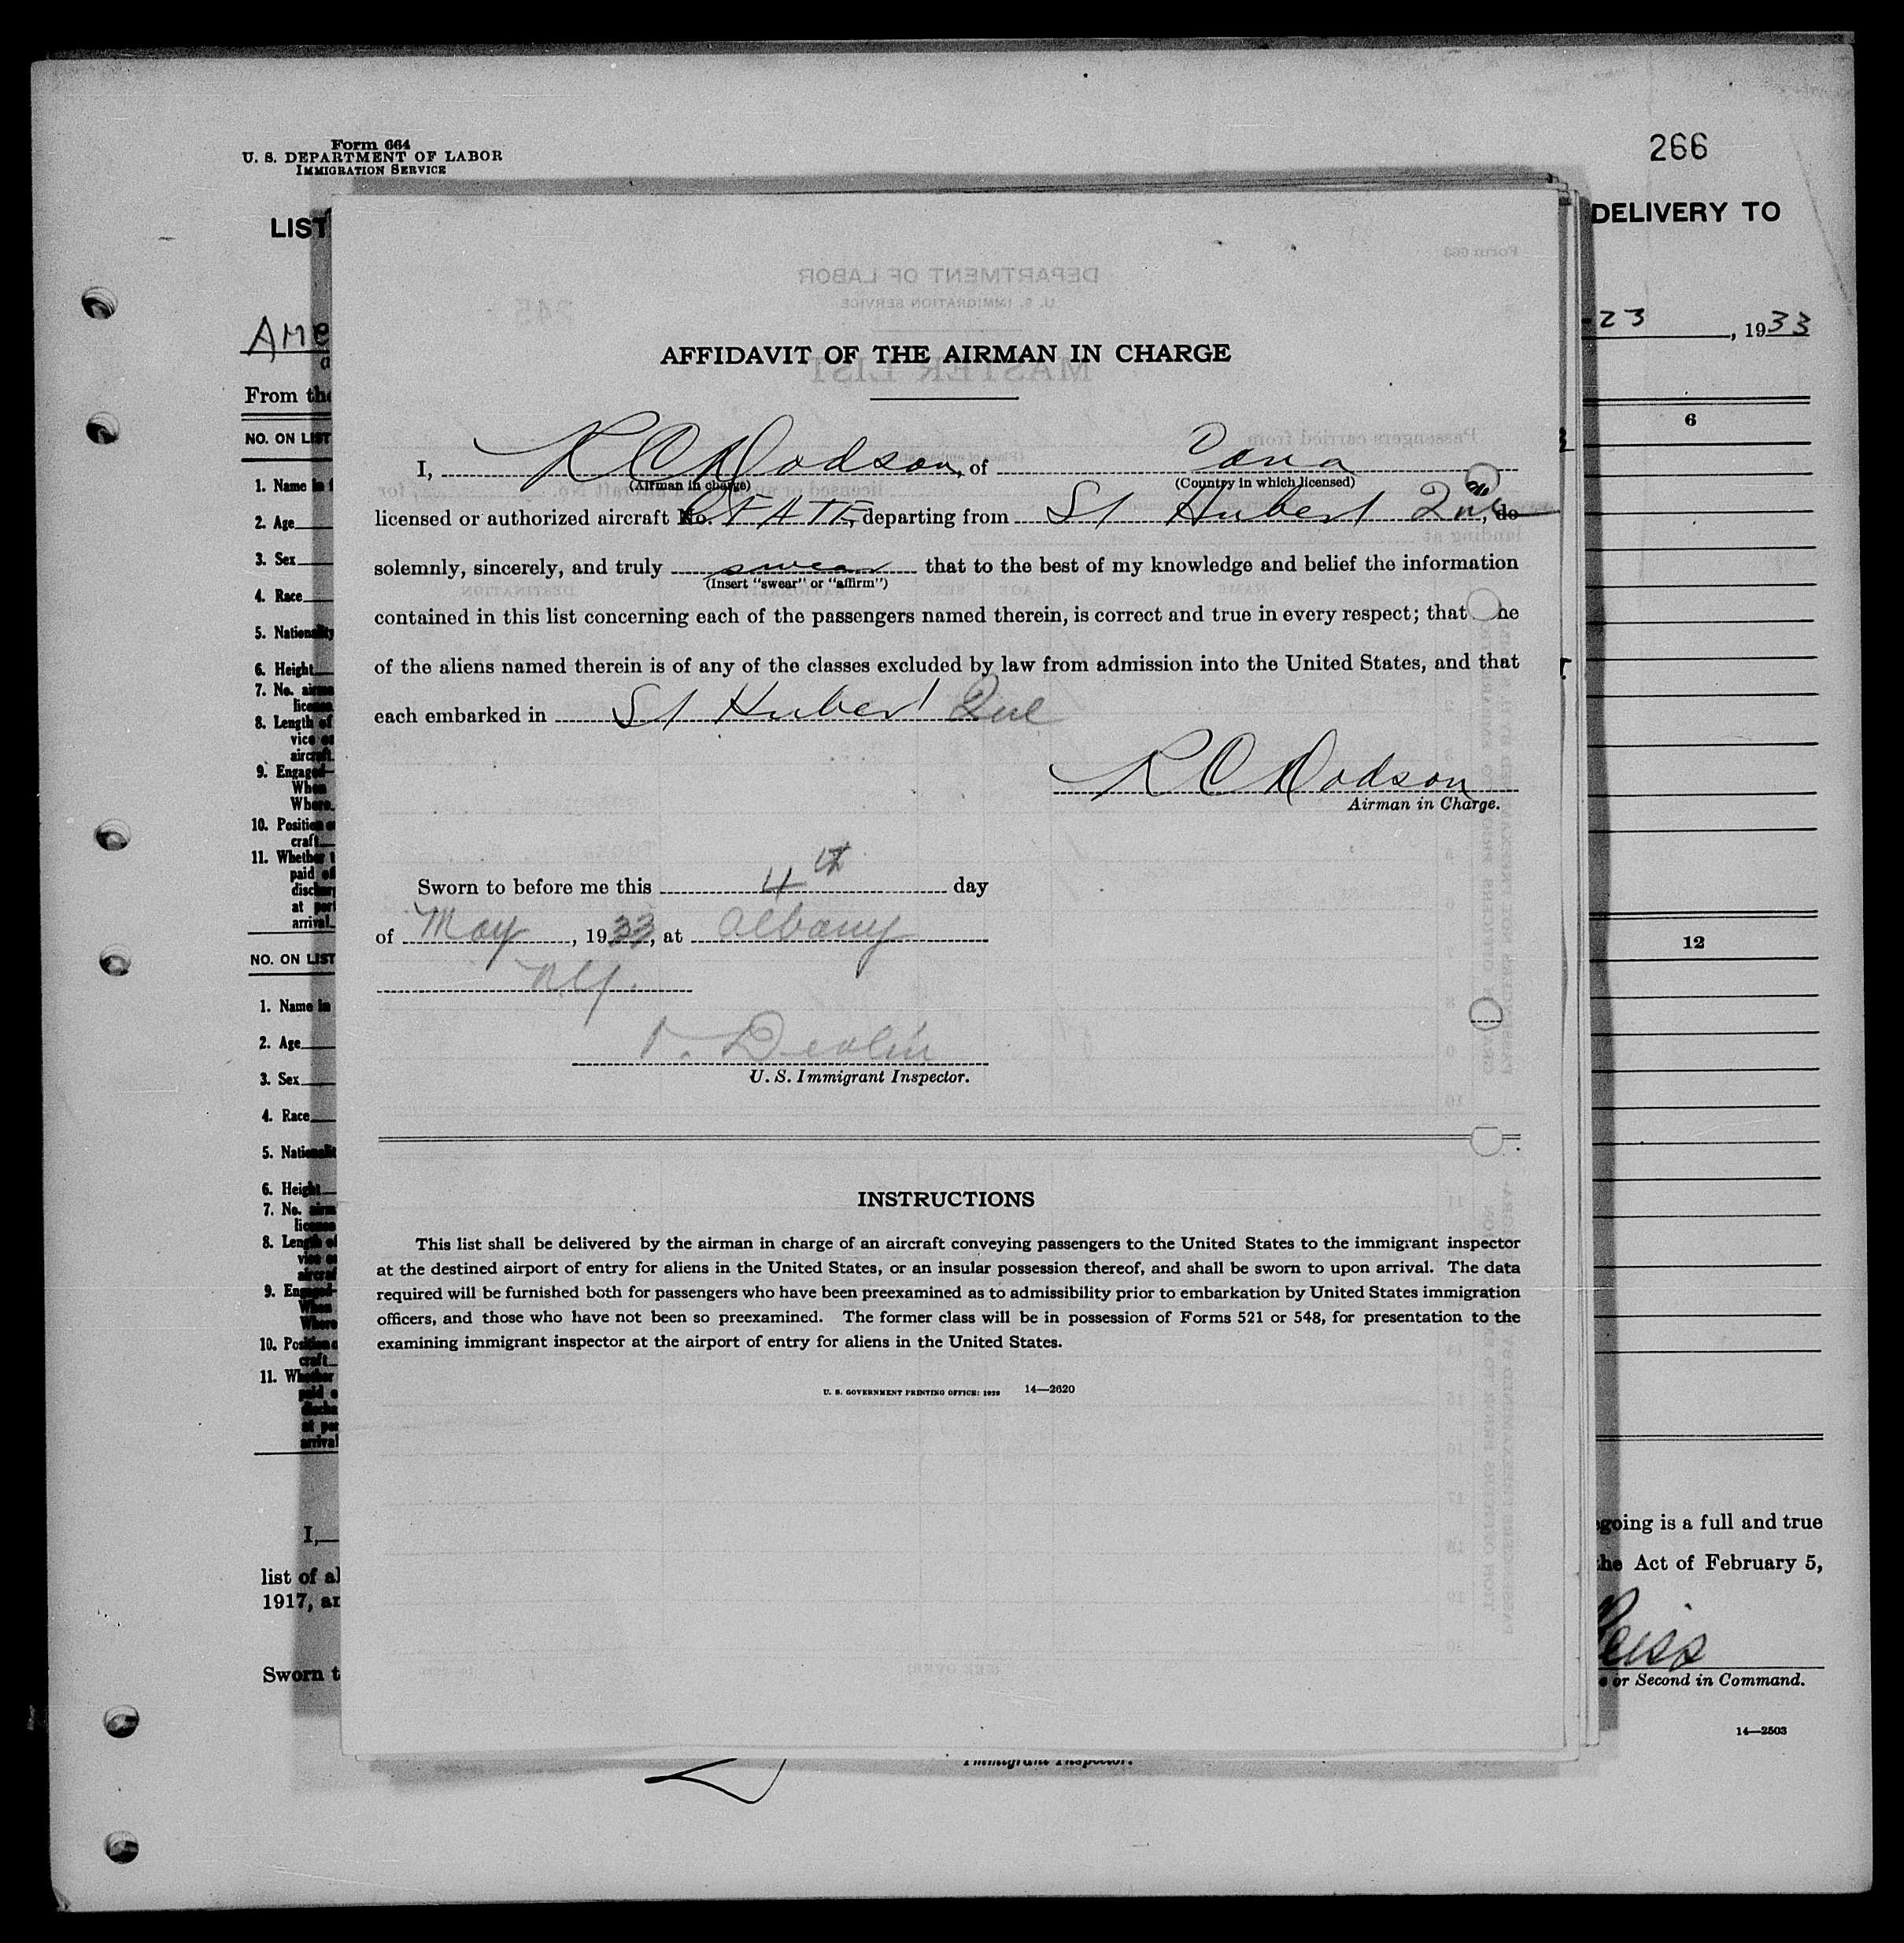 Form 664
U. S. DEPARTMENT OF LABOR
IMMIGRATION SERVICE
266
LIST
DELIVERY TO
AME
23, 1933
From the
NO. ON LIST
6
1. Name in
2. Age
3. Sex
4. Race
5. Nationality
6. Height
7. No. airma
license
8. Length of
vice on
aircraft
9. Engaged—
When
Where
10. Position
craft
11. Whether
paid of
dischar
at port
arrival
NO. ON LIST
12
1. Name in
2. Age
3. Sex
4. Race
5. Nationalit
6. Height
7. No. airm
license
8. Length of
vice on
aircraf
9. Engaged—
When
Where
10. Position
craft
11. Whether
paid o
discha
at por
arrival
I,
going is a full and true
list of al
the Act of February 5,
1917, an
Sworn t
or Second in Command.
14—2503
Immigrant Inspector.
AFFIDAVIT OF THE AIRMAN IN CHARGE
I, R C Dodson, of Cana
(Airman in charge) (Country in which licensed)
licensed or authorized aircraft No. CFATF, departing from St Hubert Que, do
solemnly, sincerely, and truly swear that to the best of my knowledge and belief the information
(Insert "swear" or "affirm")
contained in this list concerning each of the passengers named therein, is correct and true in every respect; that ne
of the aliens named therein is of any of the classes excluded by law from admission into the United States, and that
each embarked in St Hubert Que
R C Dodson
Airman in Charge.
Sworn to before me this 4th day
of May, 1933, at Albany
N.Y.
Devlin
U. S. Immigrant Inspector.
INSTRUCTIONS
This list shall be delivered by the airman in charge of an aircraft conveying passengers to the United States to the immigrant inspector
at the destined airport of entry for aliens in the United States, or an insular possession thereof, and shall be sworn to upon arrival. The data
required will be furnished both for passengers who have been preexamined as to admissibility prior to embarkation by United States immigration
officers, and those who have not been so preexamined. The former class will be in possession of Forms 521 or 548, for presentation to the
examining immigrant inspector at the airport of entry for aliens in the United States.
U. S. GOVERNMENT PRINTING OFFICE: 1929 14—2620